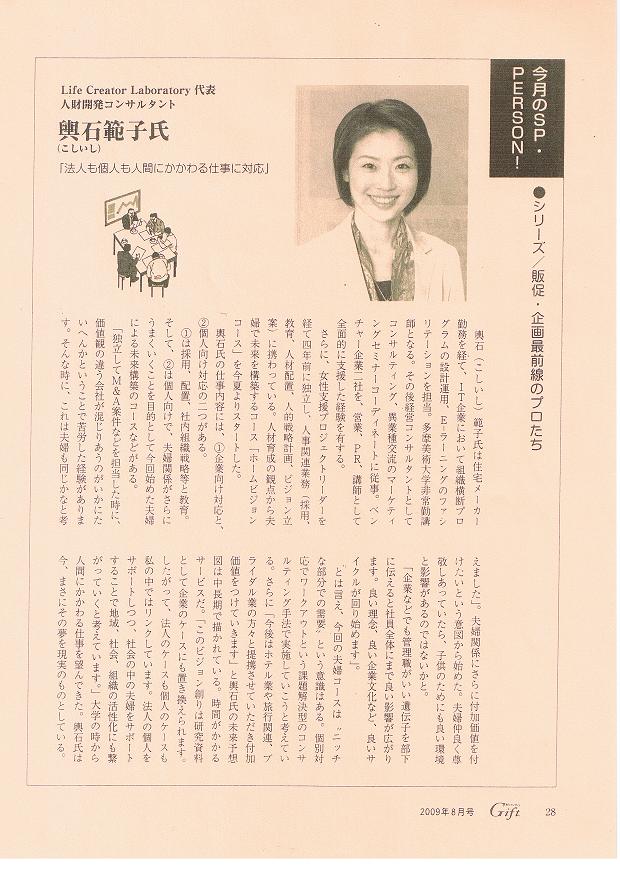 今月のSP・
PERSON!
●シリーズ/販促・企画最前線のプロたち
Life Creator Laboratory 代表
人財開発コンサルタント
輿石範子氏
(こしいし)
「法人も個人も人間にかかわる仕事に対応」
輿石(こしいし)範子氏は住宅メーカー
勤務を経て、IT企業において組織横断プロ
グラムの設計運用、E-ラーニングのファシ
リテーションを担当。多摩美術大学非常勤講
師となる。その後経営コンサルタントとして
コンサルティング、異業種交流のマーケティ
ングセミナーコーディネートに従事。ベン
チャー企業二社を、営業、PR、講師として
全面的に支援した経験を有する。
さらに、女性支援プロジェクトリーダーを
経て四年前に独立し、人事関連業務(採用、
教育、人材配置、人的戦略計画、ビジョン立
案)に携わっている。人材育成の観点から夫
婦で未来を構築するコース「ホームビジョン
コース」を今夏よりスタートした。
輿石氏の仕事内容には、①企業向け対応と、
②個人向け対応の二つがある。
①は採用、配置、社内組織戦略等と教育。
そして、②は個人向けで、夫婦関係がさらに
うまくいくことを目的として今回始めた夫婦
による未来構築のコースなどがある。
「独立してM&A案件などを担当した時に、
価値観の違う会社が混じりあうのがいかにた
いへんかということで苦労した経験がありま
す。そんな時に、これは夫婦も同じかなと考
えました」。夫婦関係にさらに付加価値を付
けたいという意図から始めた。夫婦仲良く尊
敬しあっていたら、子供のためにも良い環境
と影響があるのではないかと。
「企業などでも管理職がいい遺伝子を部下
に伝えると社員全体にまで良い影響が広がり
ます。良い理念、良い企業文化など、良いサ
イクルが回り始めます」。
とは言え、今回の夫婦コースは〝ニッチ
な部分での需要〟という意識はある。個別対
応でワークアウトという課題解決型のコンサ
ルティング手法で実施していこうと考えてい
る。さらに「今後はホテル業や旅行関連、ブ
ライダル業の方々と提携させていただき付加
価値をつけていきます」と輿石氏の未来予想
図は中長期で描かれている。時間がかかる
サービスだ。「このビジョン創りは研究資料
として企業のケースにも置き換えられます。
したがって、法人のケースも個人のケースも
私の中ではリンクしています。法人の個人を
サポートしつつ、社会の中の夫婦をサポート
することで地域、社会、組織の活性化にも繋
がっていくと考えています。」大学の時から
人間にかかわる仕事を望んできた。輿石氏は
今、まさにその夢を現実のものとしている。
2009年8月号 Gift 28